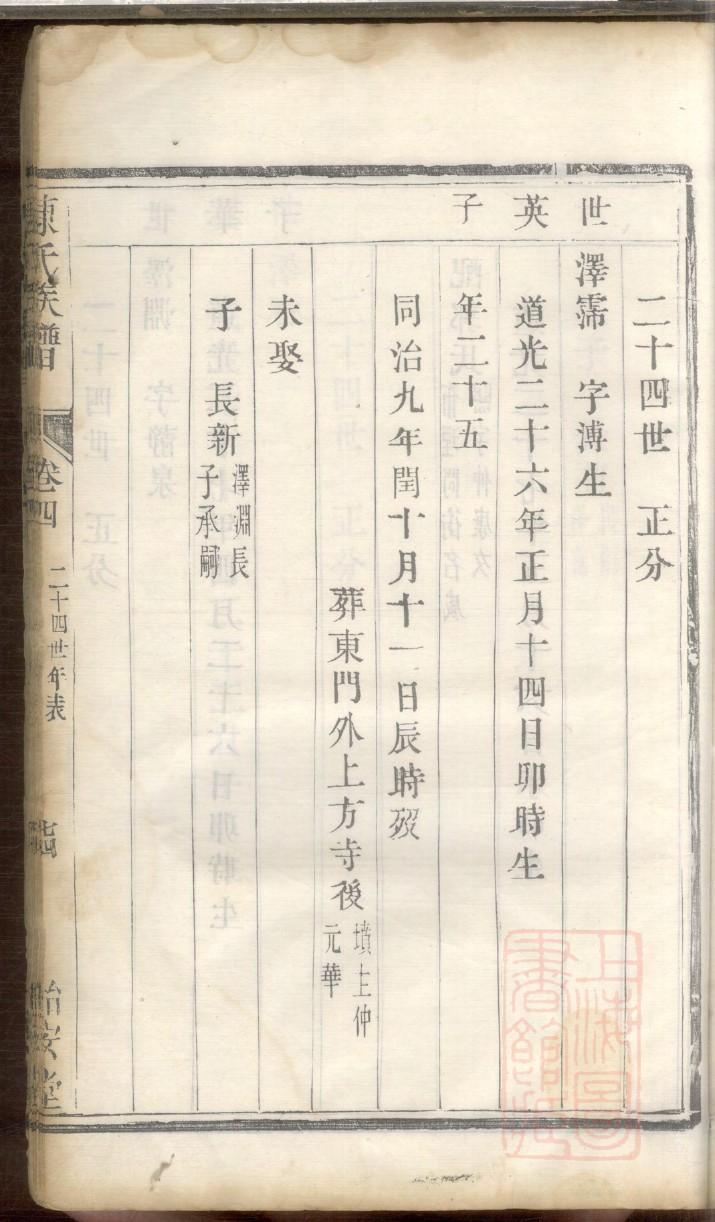 二十四世　正分
世　澤霈　字溥生
英　道光二十六年正月十四日卯時生
子　年二十五
同治九年閏十月十一日辰時歿
葬東門外上方寺後　墳主仲元華
未娶
子　長新　澤淵長子承嗣
陳氏族譜　卷四　二十四世年表　怡安堂
上海圖書館藏